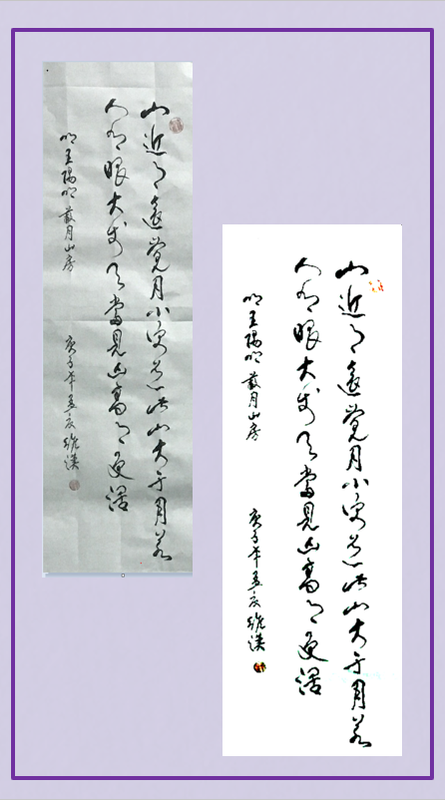 山近月遠覺月小便道此山大于月若
人有眼大於天當見山高月更濶
明王陽明 蔽月山房
庚子年孟夏
山近月遠覺月小便道此山大于月若
人有眼大於天當見山高月更濶
明王陽明 蔽月山房
庚子年孟夏